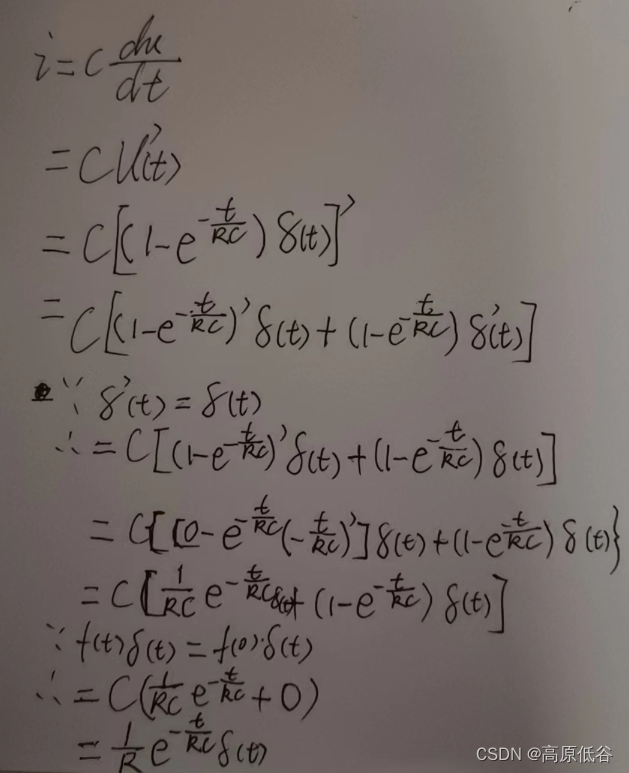 i = C du/dt
= C U'(t)
= C[(1-e^{-t/RC}) δ(t)]'
= C[(1-e^{-t/RC})' δ(t) + (1-e^{-t/RC}) δ'(t)]
∵ δ'(t) = δ(t)
∴ = C[(1-e^{-t/RC})' δ(t) + (1-e^{-t/RC}) δ(t)]
= C{[0-e^{-t/RC}(-t/RC)'] δ(t) + (1-e^{-t/RC}) δ(t)}
= C[1/RC e^{-t/RC} δ(t) + (1-e^{-t/RC}) δ(t)]
∵ f(t)δ(t) = f(0)·δ(t)
∴ = C(1/RC e^{-t/RC} + 0)
= 1/R e^{-t/RC} δ(t)
CSDN @高原低谷